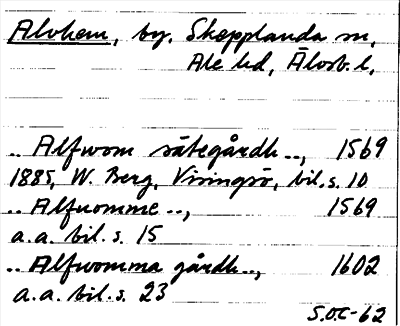 Alvhem, by, Skepplanda sn,
Ale hd, Älvsb. l,
.. Alfwom sätegårdh..., 1569
1885, W. Berg, Visingsö, bil. s. 10
.. Alfuomme ..., 1569
a.a. bil. s. 15
.. Alfwomma gårdh.., 1602
a.a. bil. s. 23
S.O.C-62